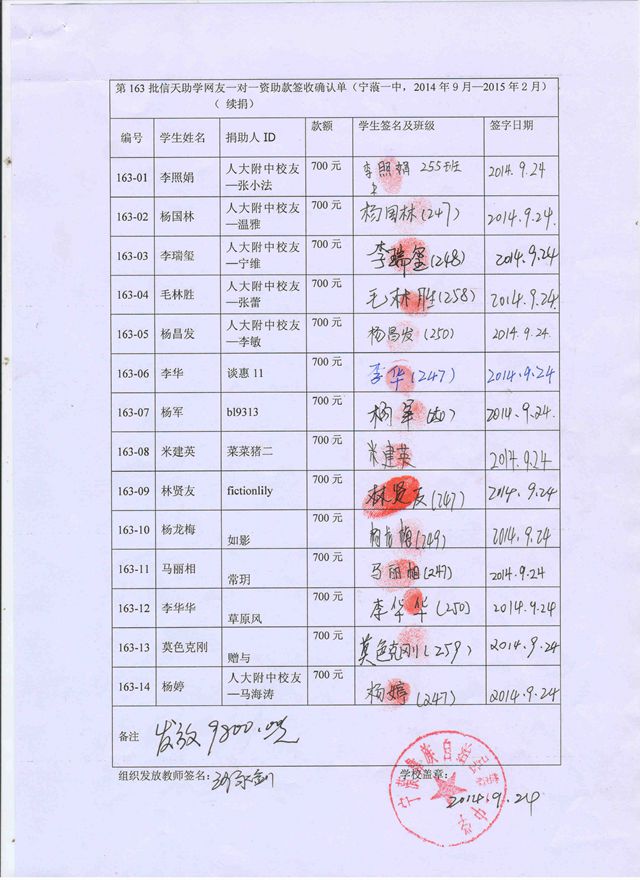 第 163 批信天助学网友一对一资助款签收确认单（宁蒗一中，2014 年 9 月—2015 年 2 月）
（ 续捐）
编号 学生姓名 捐助人 ID 款额 学生签名及班级 签字日期
163-01 李照娟 人大附中校友—张小法 700 元 李照娟 255班 2014.9.24
163-02 杨国林 人大附中校友—温雅 700 元 杨国林(247) 2014.9.24.
163-03 李瑞玺 人大附中校友—宁维 700 元 李瑞玺(248) 2014.9.24
163-04 毛林胜 人大附中校友—张蕾 700 元 毛林胜(258) 2014.9.24.
163-05 杨昌发 人大附中校友—李敏 700 元 杨昌发(250) 2014.9.24.
163-06 李华 谈惠 11 700 元 李华(247) 2014.9.24
163-07 杨军 bl9313 700 元 杨军 2014.9.24.
163-08 米建英 菜菜猪二 700 元 米建英 2014.9.24
163-09 林贤友 fictionlily 700 元 林贤友(247) 2014.9.24
163-10 杨龙梅 如影 700 元 杨龙梅(249) 2014.9.24
163-11 马丽相 常玥 700 元 马丽相(247) 2014.9.24
163-12 李华华 草原风 700 元 李华华(250) 2014.9.24
163-13 莫色克刚 赠与 700 元 莫色克刚(259) 2014.9.24
163-14 杨婷 人大附中校友—马海涛 700 元 杨婷(247) 2014.9.24
备注 发放9800.元
组织发放教师签名： 学校盖章：
2014.9.24